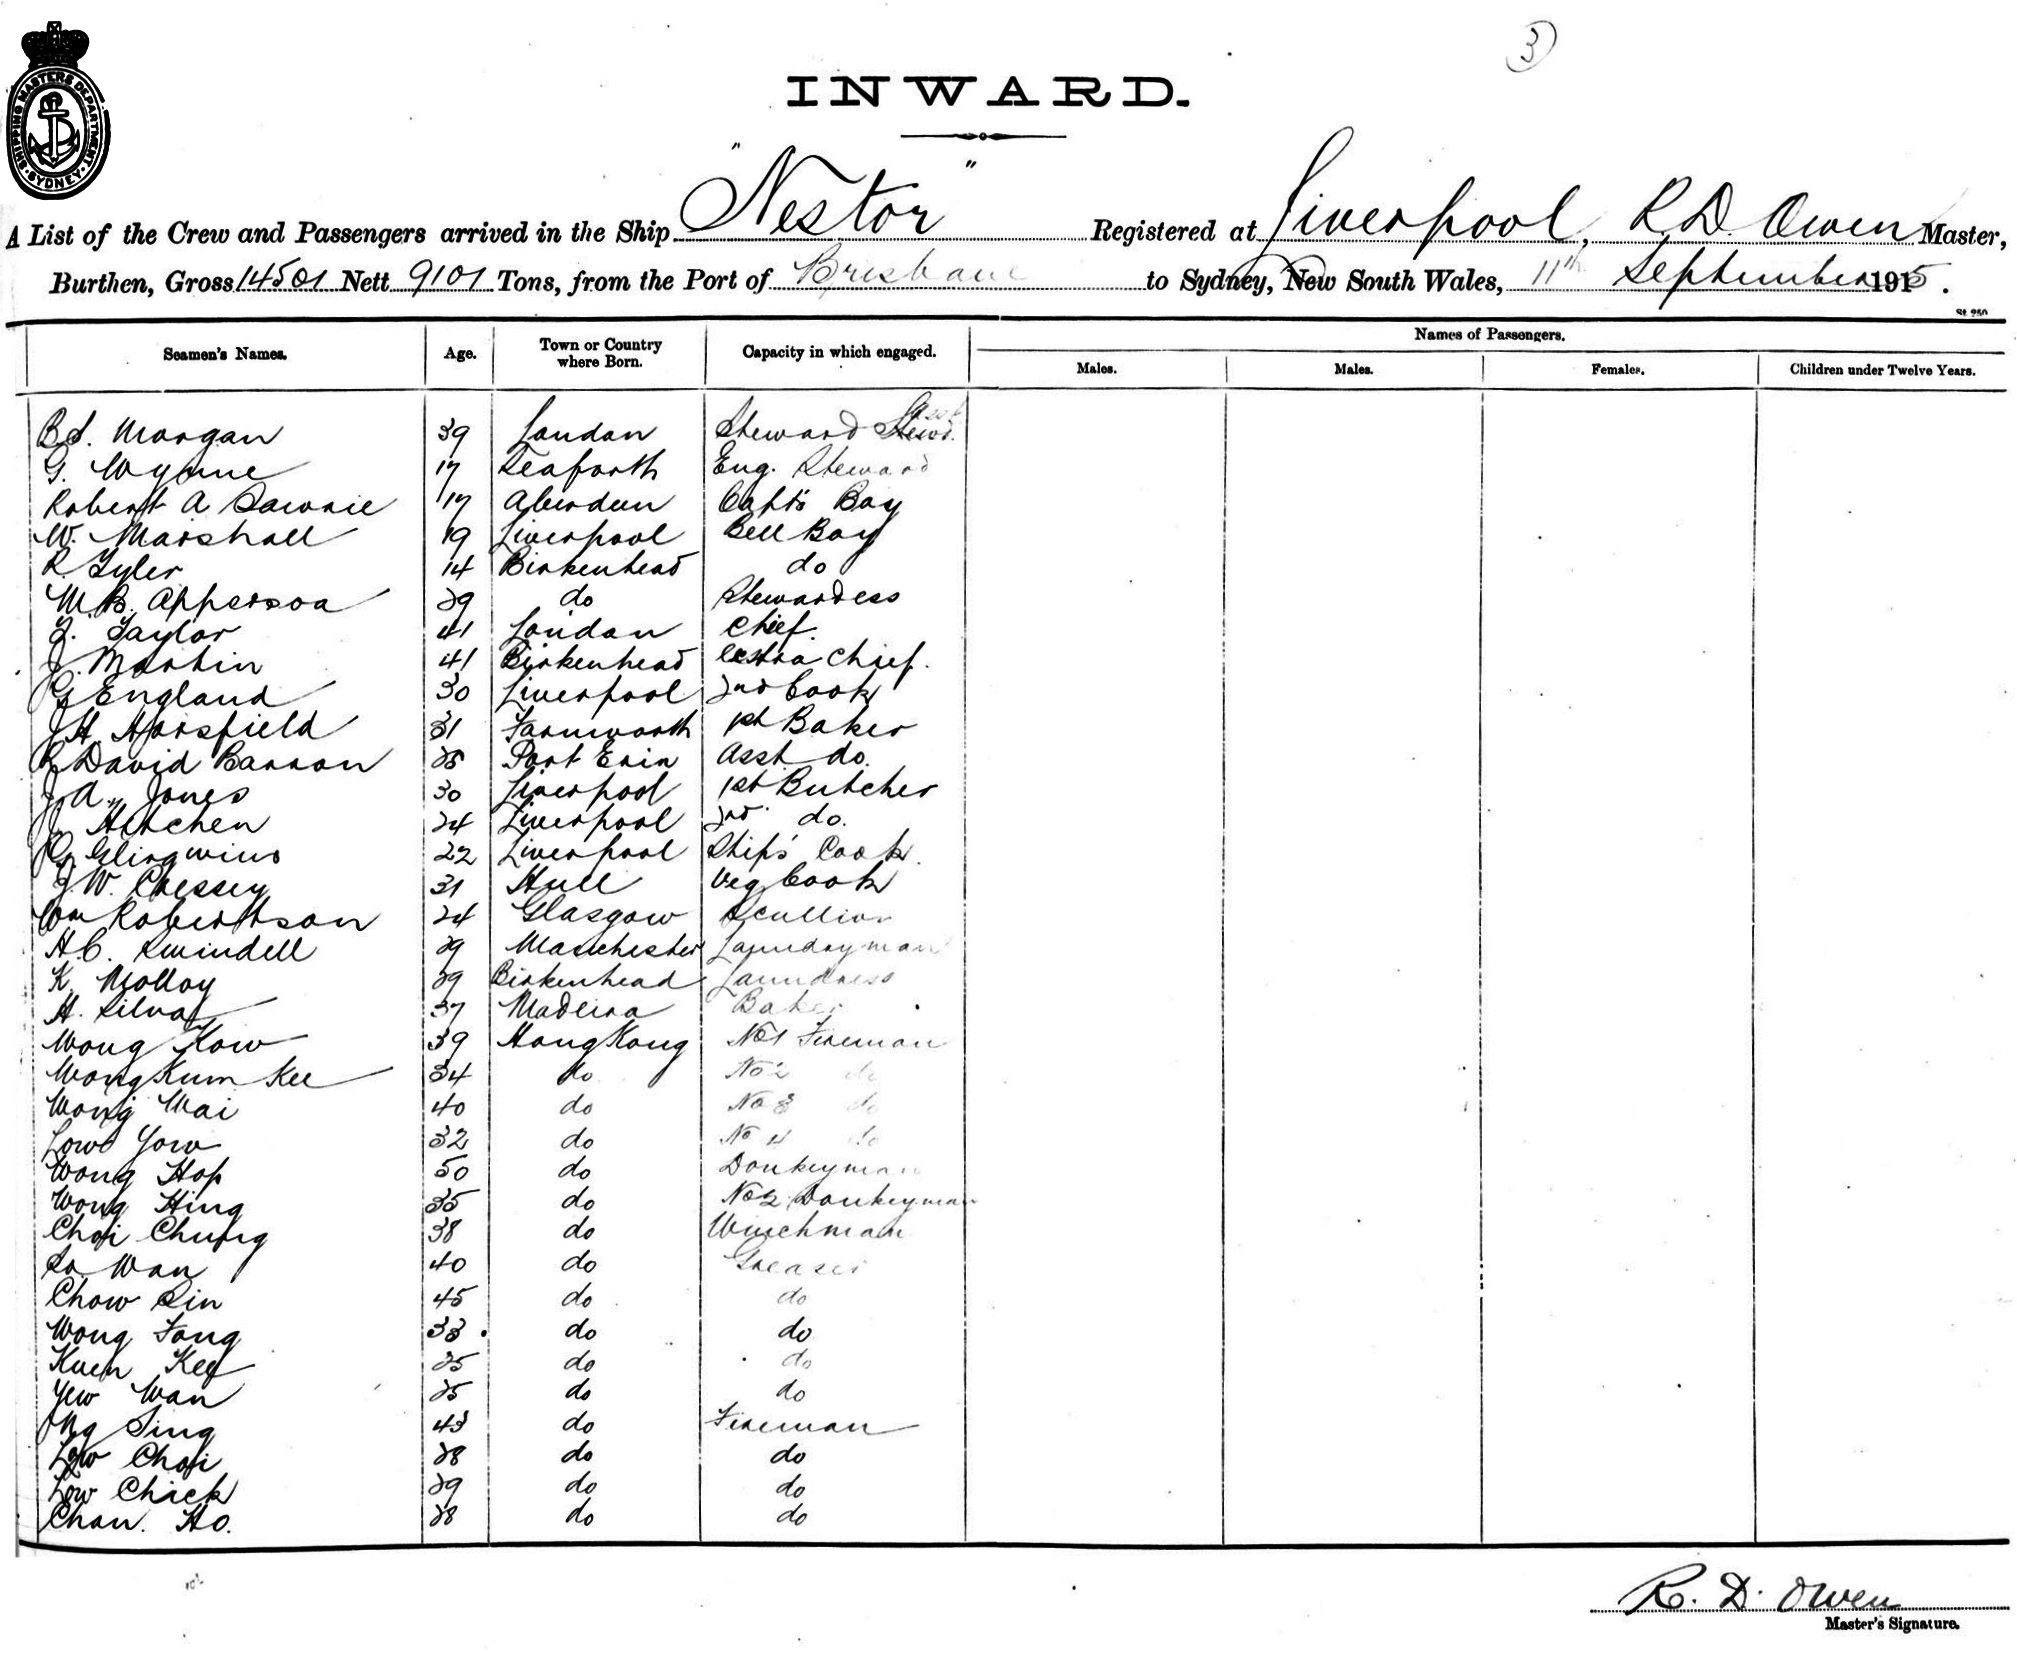 3
INWARD.
SHIPPING MASTERS DEPARTMENT. SYDNEY.
A List of the Crew and Passengers arrived in the Ship "Nestor" Registered at Liverpool, R.D. Owen Master,
Burthen, Gross 14501 Nett 9101 Tons, from the Port of Brisbane to Sydney, New South Wales, 11th September 1915.
St 250
Seamen's Names. Age. Town or Country where Born. Capacity in which engaged. Names of Passengers.
Males. Males. Females. Children under Twelve Years.
Morgan 39 London Steward Asst Stewd.
G. Wynne 17 Seaforth Eng. Steward
Robert A 17 Aberdeen Capt's Boy
W. Marshall 19 Liverpool Bell Boy
R. Tyler 14 Birkenhead do
M.B. Apperson 29 do Stewardess
Taylor 41 London Chief
J. Martin 41 Birkenhead Extra Chief.
G England 30 Liverpool 2nd Cook
J H Horsfield 31 Farnworth 1st Baker
R David Barron 28 Port Erin Asst do.
J. A. Jones 30 Liverpool 1st Butcher
J Hitchen 24 Liverpool 2nd do.
22 Liverpool Ships' Cook.
J. W. Chessey 31 Hull Veg Cook
Wm Robertson 24 Glasgow Scullion
H.C. Swindell 29 Manchester Laundryman
K. Molloy 29 Birkenhead Laundress
H. Silva 37 Madeira Baker
Wong Kow 39 Hong Kong No 1 Fireman
Wong Kum Kee 34 do No 2 do
Wong Wai 40 do No 3 do
Low Yow 32 do No 4 do
Wong Hop 50 do Donkeyman
Wong Hing 35 do No 2 Donkeyman
Choi Chung 38 do Winchman
So Wan 40 do Greaser
Chow Sin 45 do do
Wong Fong 33 do do
Kuen Kee 25 do do
Yew Wan 25 do do
Ng Sing 43 do Fireman
Low Choi 28 do do
Low Chick 29 do do
Chan. Ho. 28 do do
R. D. Owen
Master's Signature.